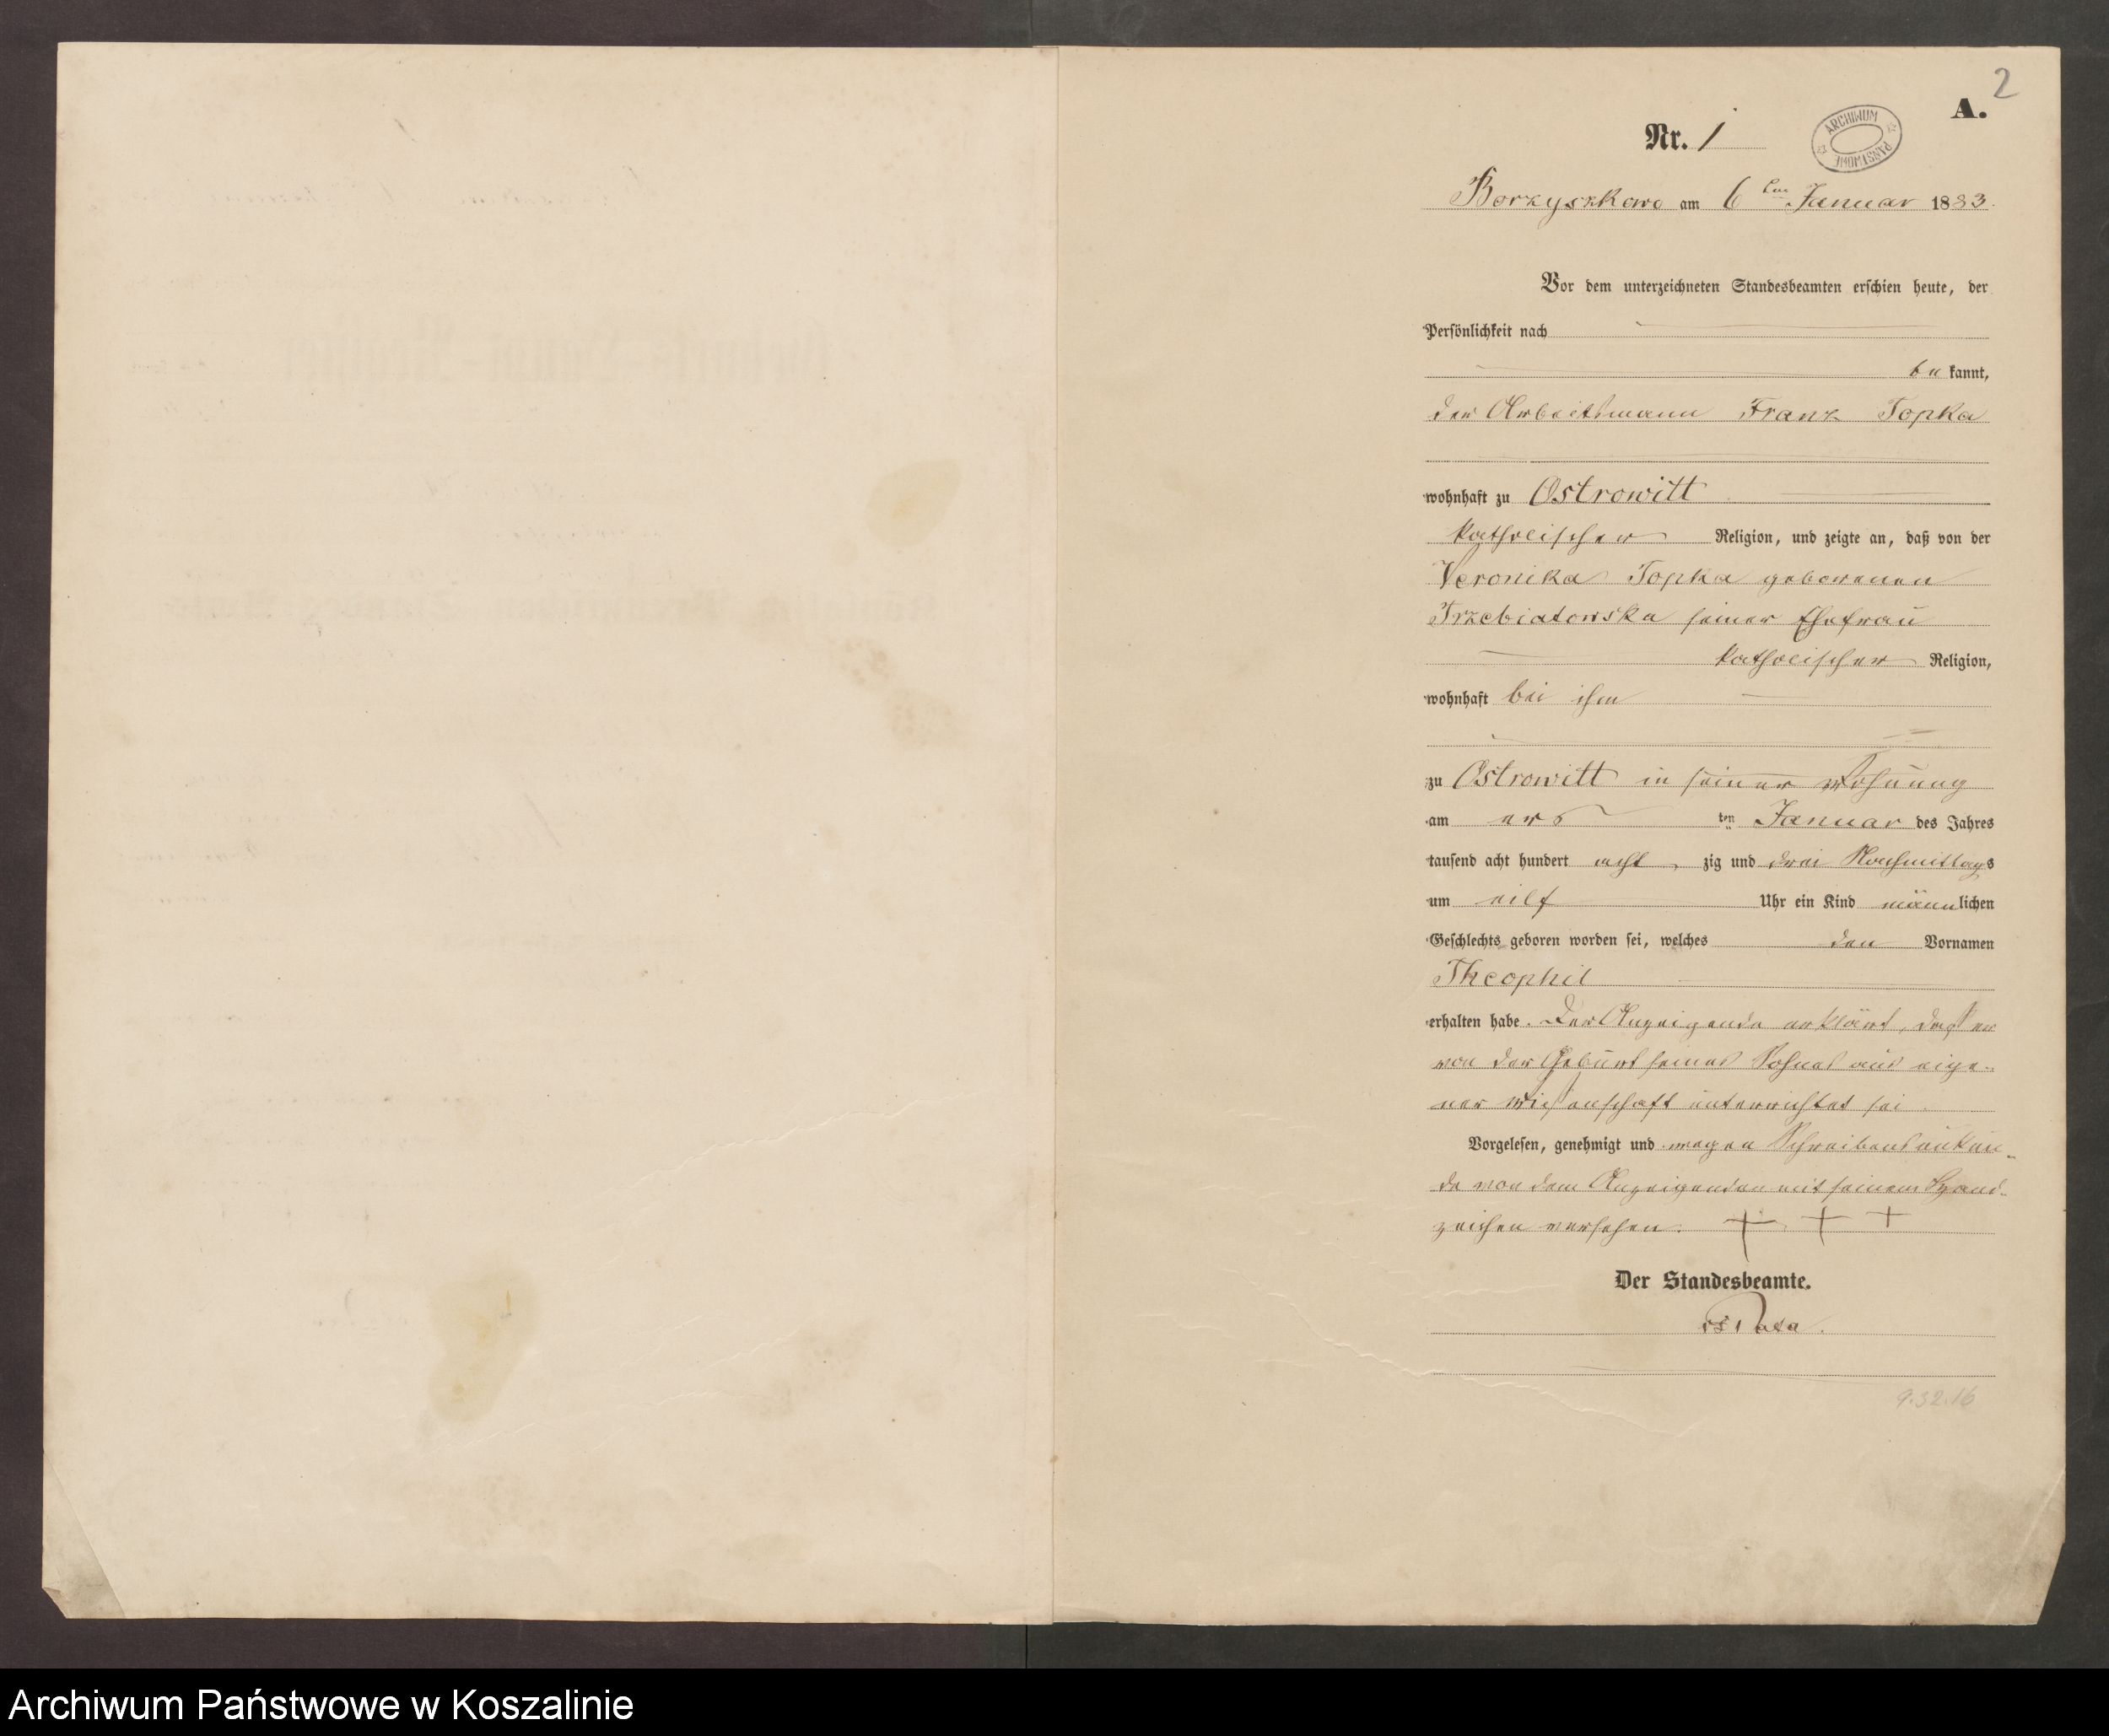 2
A.
Nr. 1
ARCHIWUM PAŃSTWOWE
Borzyszkowo am 6ten Januar 1883.
Vor dem unterzeichneten Standesbeamten erschien heute, der
Persönlichkeit nach
be kannt,
der Arbeitsmann Franz Topka
wohnhaft zu Ostrowitt
katholischer Religion, und zeigte an, daß von der
Veronika Topka geborenen
Trzebiatowska seiner Ehefrau
katholischer Religion,
wohnhaft bei ihm
zu Ostrowitt in seiner Wohnung
am ers ten Januar des Jahres
tausend acht hundert acht zig und drei Nachmittags
um eilf Uhr ein Kind männlichen
Geschlechts geboren worden sei, welches den Vornamen
Theophil
erhalten habe. Der Anzeigende erklärt, daß er
von der Geburt seines Sohnes aus eige-
ner Wissenschaft unterrichtet sei.
Vorgelesen, genehmigt und wegen Schreibensunkun-
de von dem Anzeigenden mit seinem Hand-
zeichen versehen. + + +
Der Standesbeamte.
9.32.16
Archiwum Państwowe w Koszalinie